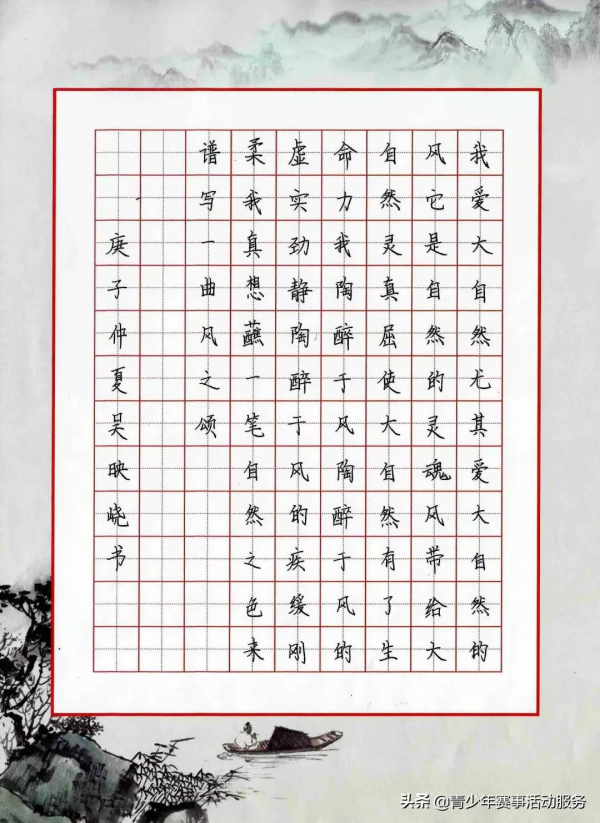 我爱大自然尤其爱大自然的
风它是自然的灵魂风带给大
自然灵真屈使大自然有了生
命力我陶醉于风陶醉于风的
虚实劲静陶醉于风的疾缓刚
柔我真想蘸一笔自然之色来
谱写一曲风之颂
庚子仲夏吴映峣书
头条 @青少年赛事活动服务